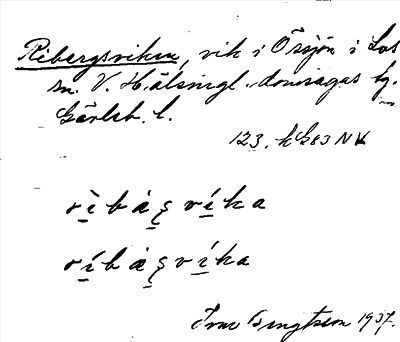 Ribergsviken, vik i Össjön i Los
sn. V. Hälsingl. domsagas tg.
Gävleb. l.
123. kG83 NV
rìbàʂvíka
ríbàʂvíka
Ivar Bengtsson 1937.